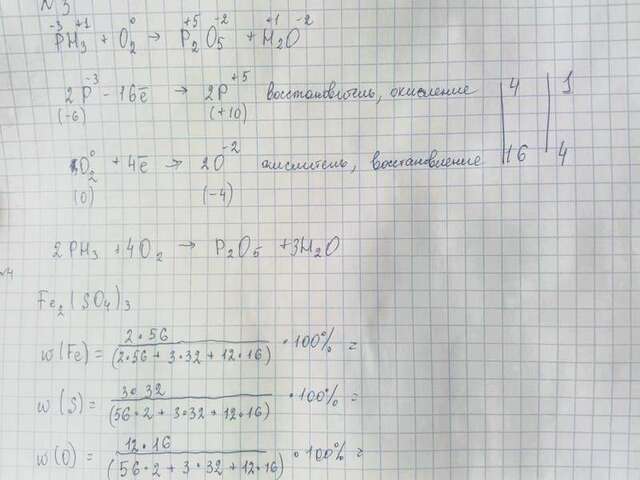 N 3
-3 +1 0 +5 -2 +1 -2
PH₃ + O₂ → P₂O₅ + H₂O
2P⁻³ - 16ē → 2P⁺⁵ восстановитель, окисление 4 1
(-6) (+10)
O₂⁰ + 4ē → 2O⁻² окислитель, восстановление 16 4
(0) (-4)
2PH₃ + 4O₂ → P₂O₅ + 3H₂O
№4
Fe₂(SO₄)₃
w(Fe) = 2·56 / (2·56 + 3·32 + 12·16) · 100% =
w(S) = 3·32 / (56·2 + 3·32 + 12·16) · 100% =
w(O) = 12·16 / (56·2 + 3·32 + 12·16) · 100% =